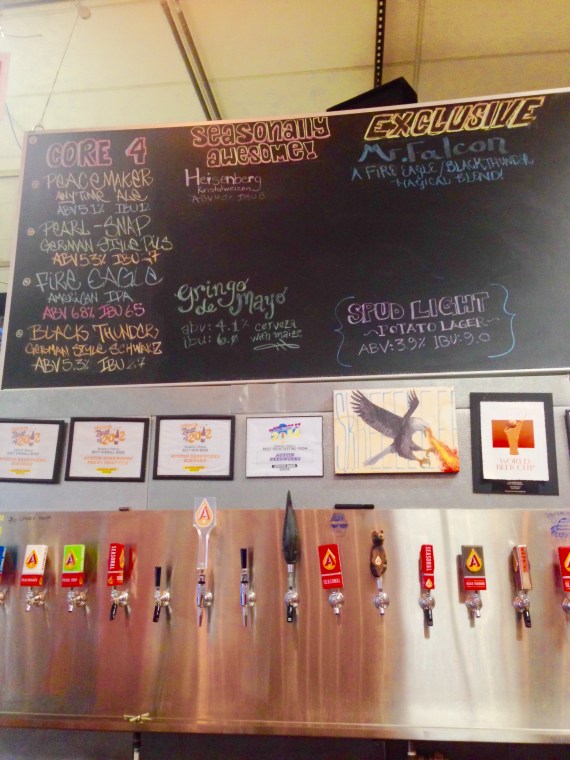 CORE 4
PEACEMAKER
ANYTIME ALE
ABV 5.1%
PEARL-SNAP
GERMAN STYLE PILS
ABV 5.3%
FIRE EAGLE
AMERICAN IPA
ABV 6.8% IBU 65
BLACK THUNDER
GERMAN STYLE SCHWARZ
ABV 5.3% IBU 27
SEASONALLY
AWESOME!
Heisenberg
Kristallweizen
Gringo
de Mayo
abv: 4.1% cerveza
ibu: 6.0 with maize
EXCLUSIVE
Mr. Falcon
A FIRE EAGLE/BLACK THUNDER
MAGICAL BLEND!
SPUD LIGHT
~POTATO LAGER~
ABV: 3.9% IBU: 9.0
2012
2012
2012
WORLD
BEER CUP
SEASONAL
SEASONAL